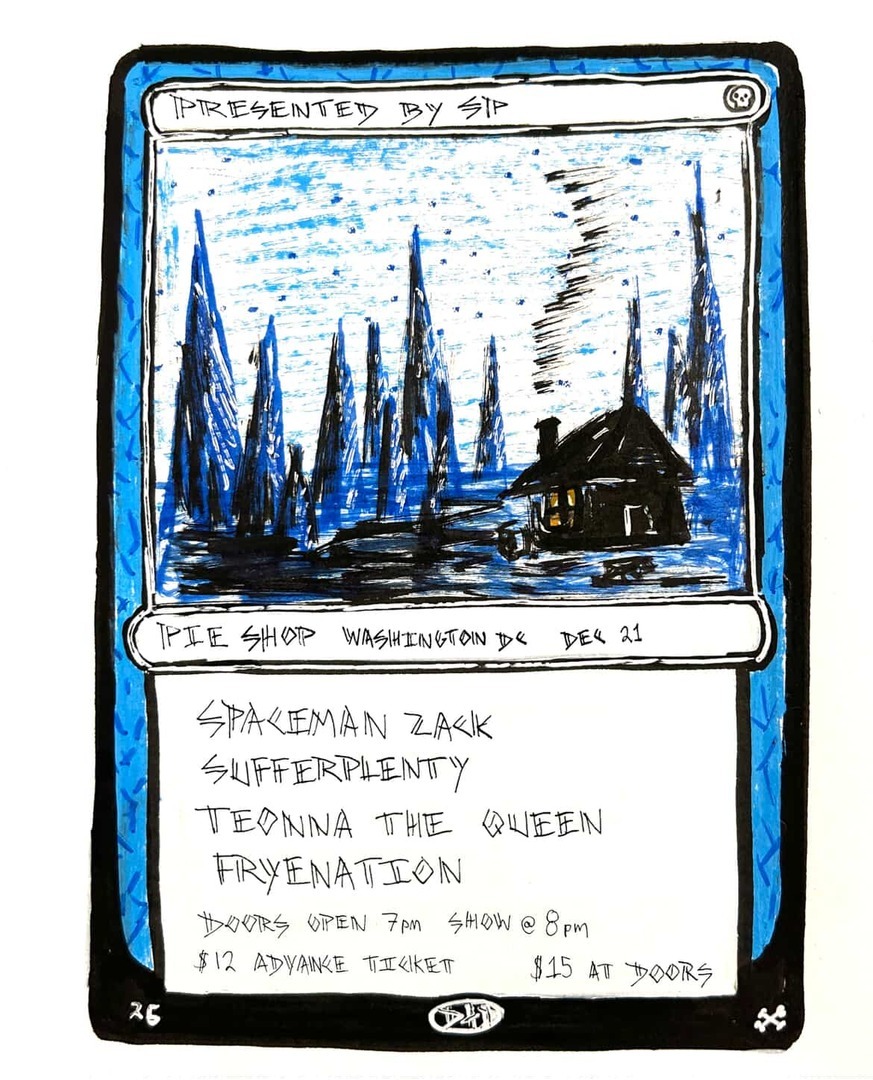 PRESENTED BY SP
PIE SHOP WASHINGTON DC DEC 21
SPACEMAN ZACK
SUFFERPLENTY
TEONNA THE QUEEN
FRYENATION
DOORS OPEN 7pm SHOW @ 8pm
$12 ADVANCE TICKET $15 AT DOORS